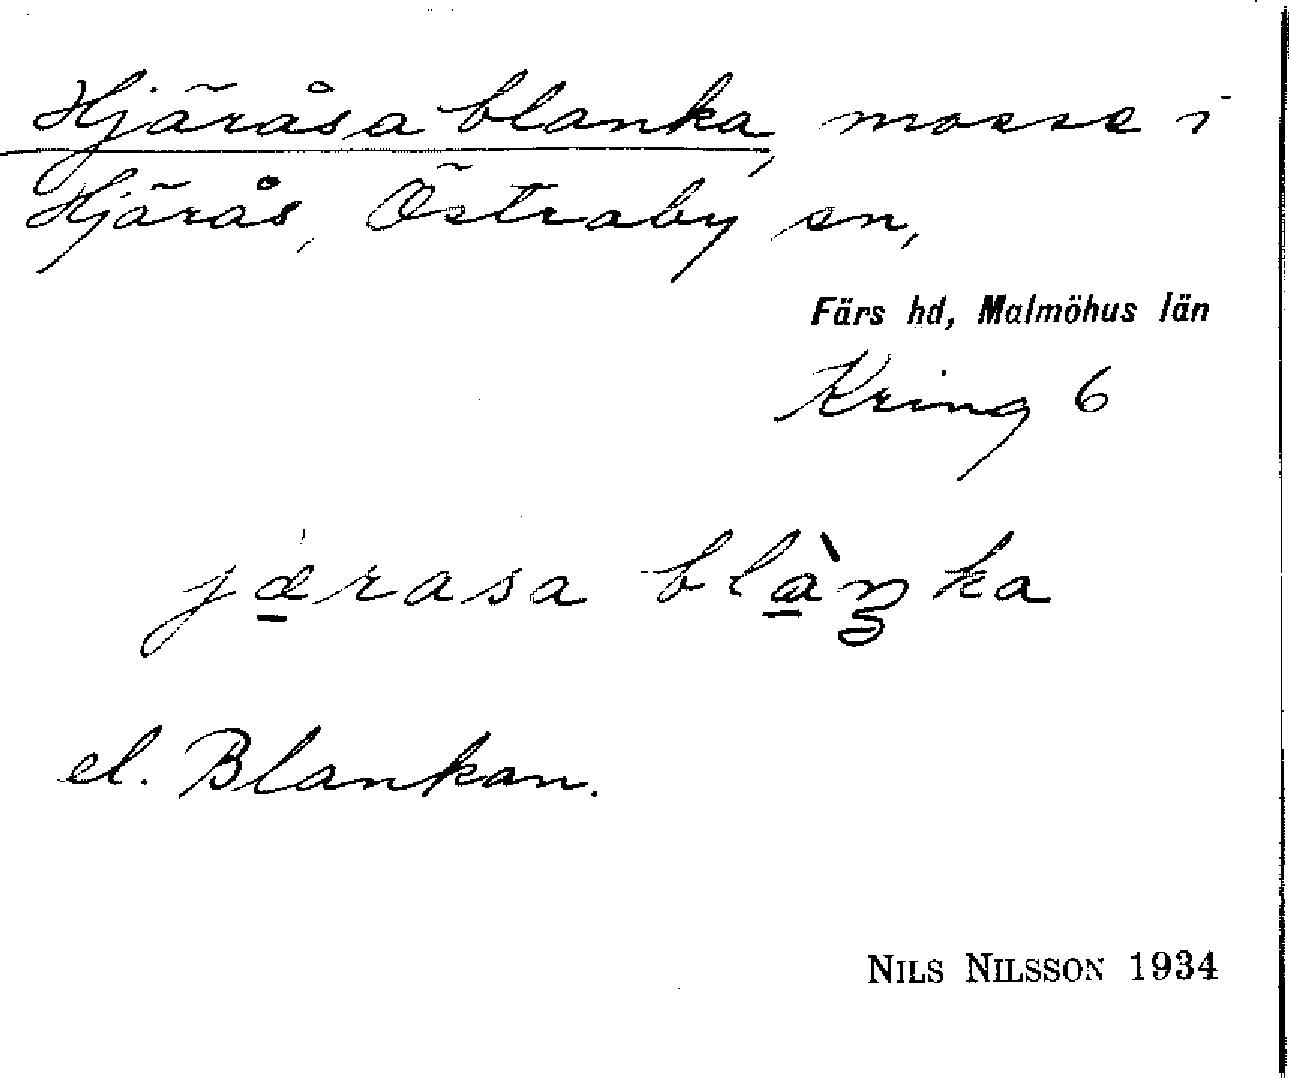 Hjäråsa blanka, mosse i
Hjärås, Östraby sn,
Färs hd, Malmöhus län
Kring 6
jǽ̱rasa blà̱ŋka
el. Blankan.
NILS NILSSON 1934